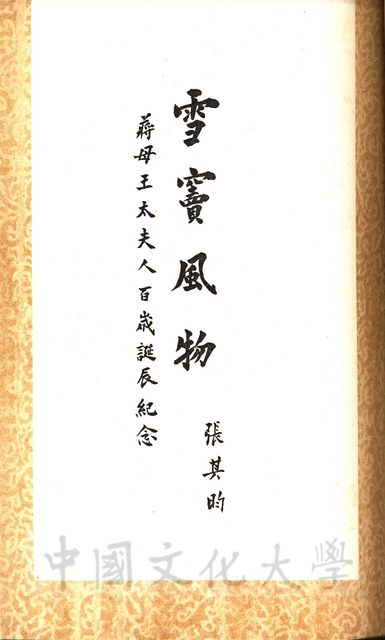 雪竇風物
蔣母王太夫人百歲誕辰紀念
張其昀
中國文化大學